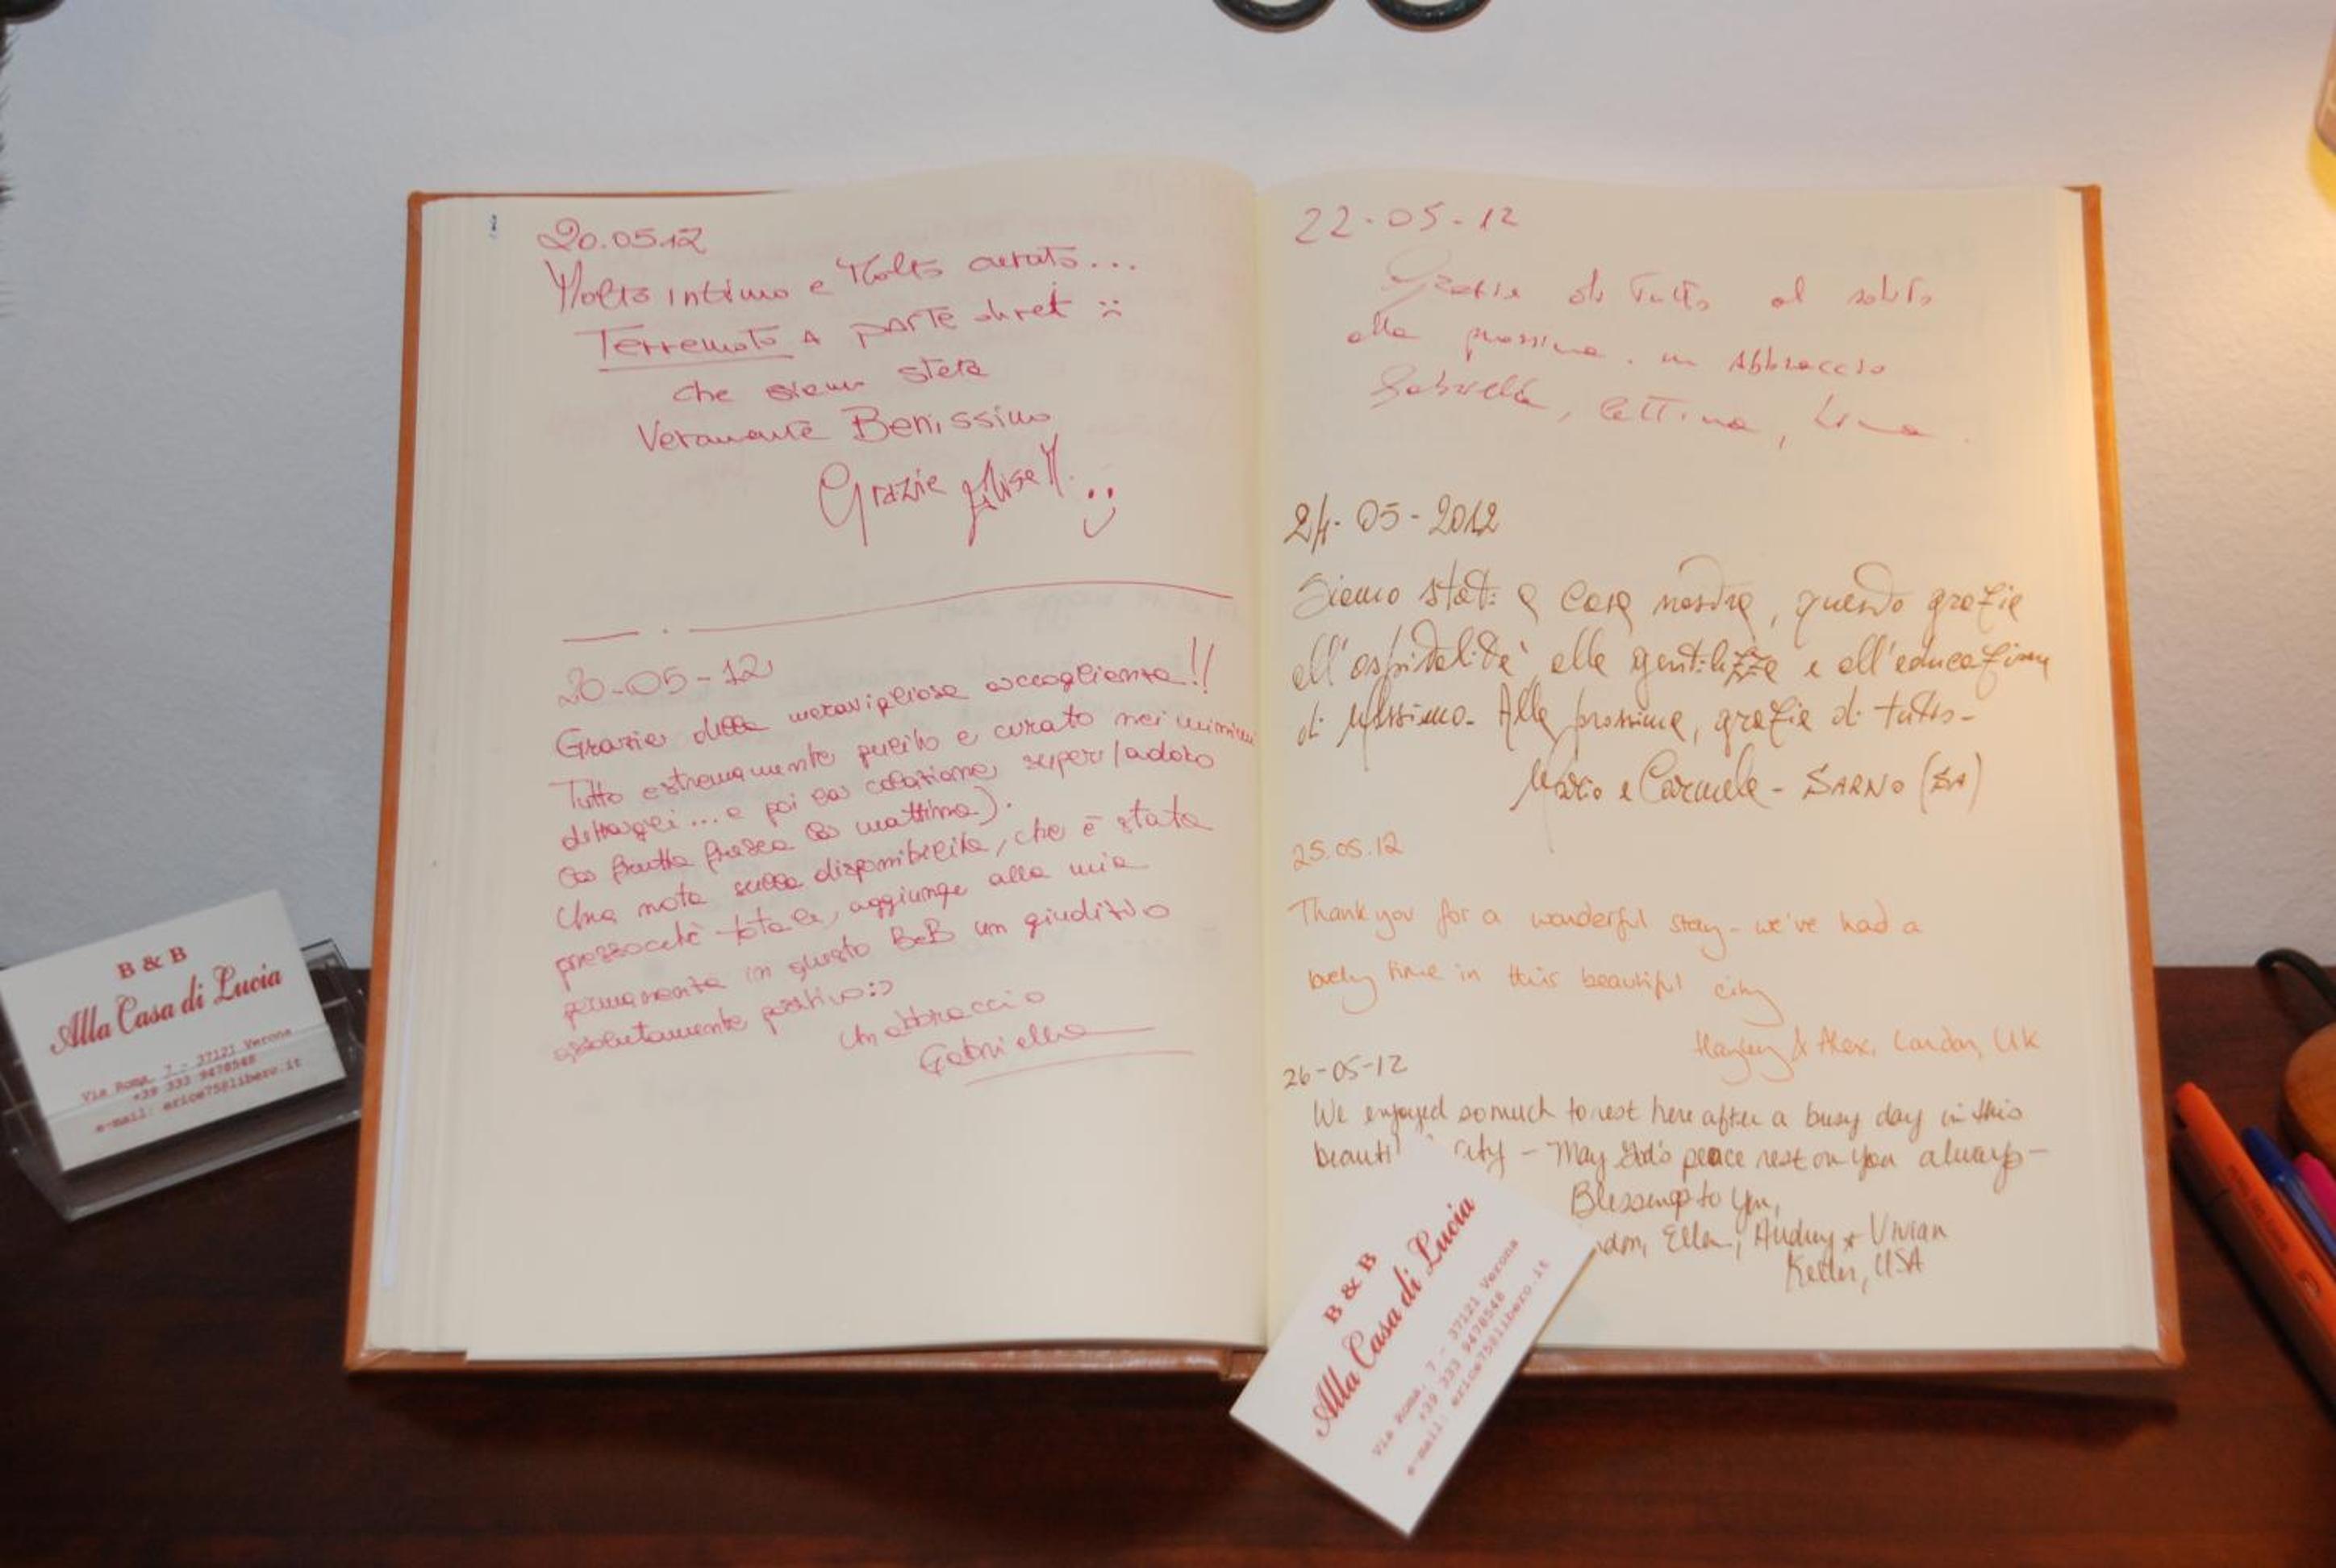 20.05.12
Molto intimo e Molto curato...
Terremoto a parte diret :(
che siamo state
Veramente Benissimo
Grazie
20-05-12
Grazie della meravigliosa accoglienza!!
Tutto estremamente pulito e curato nei minimi
dettagli... e poi la colazione, super (adoro
la frutta fresca la mattina).
Una nota sulla disponibilità, che è stata
pressocché totale, aggiunge alla mia
permanenza in questo B&B un giudizio
assolutamente positivo :)
Un abbraccio
Gabriella
22-05-12
Grazie di tutto al solito
alla prossima. un Abbraccio
Gabriella, Lettina, Lina.
24-05-2012
Siamo stati a casa nostra, quindo grazie
all'ospitalità, alla gentilezza e all'educazione
di Massimo. Alla prossima, grazie di tutto-
Mario e Carmela - SARNO (SA)
25.05.12
Thank you for a wonderful stay - we've had a
lovely time in this beautiful city
Hayley & Alex, London, UK
26-05-12
We enjoyed so much to rest here after a busy day in this
beauti city - May God's peace rest on you always -
Blessings to you,
Ellen, Audrey & Vivian
Keller, USA
B & B
Alla Casa di Lucia
Via Roma, 7 - 37121 Verona
+39 333 9478548
e-mail: erice75@libero.it
B & B
Alla Casa di Lucia
Via Roma, 7 - 37121 Verona
+39 333 9478548
e-mail: erice75@libero.it